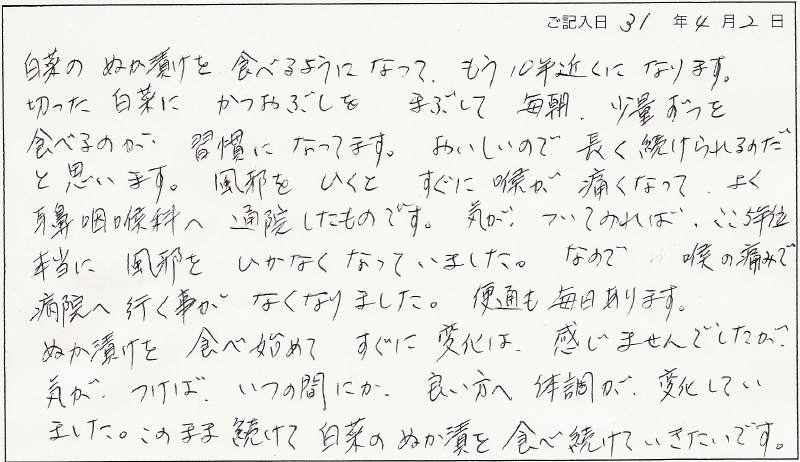 ご記入日 31 年 4 月 2 日
白菜の ぬか漬けを 食べるようになって、もう10年近くになります。
切った 白菜に かつおぶしを まぶして 毎朝、少量ずつを
食べるのが 習慣になってます。おいしいので 長く続けられるのだ
と思います。風邪を ひくと すぐに 喉が 痛くなって、よく
耳鼻咽喉科へ 通院したものです。気が ついてみれば、ここ5年位
本当に 風邪を ひかなくなっていました。なので 喉の痛みで
病院へ 行く事が なくなりました。便通も 毎日あります。
ぬか漬けを 食べ始めて すぐに 変化は、感じませんでしたが、
気が つけば、いつの間にか、良い方へ 体調が、変化してい
ました。このまま 続けて 白菜の ぬか漬を 食べ続けていきたいです。